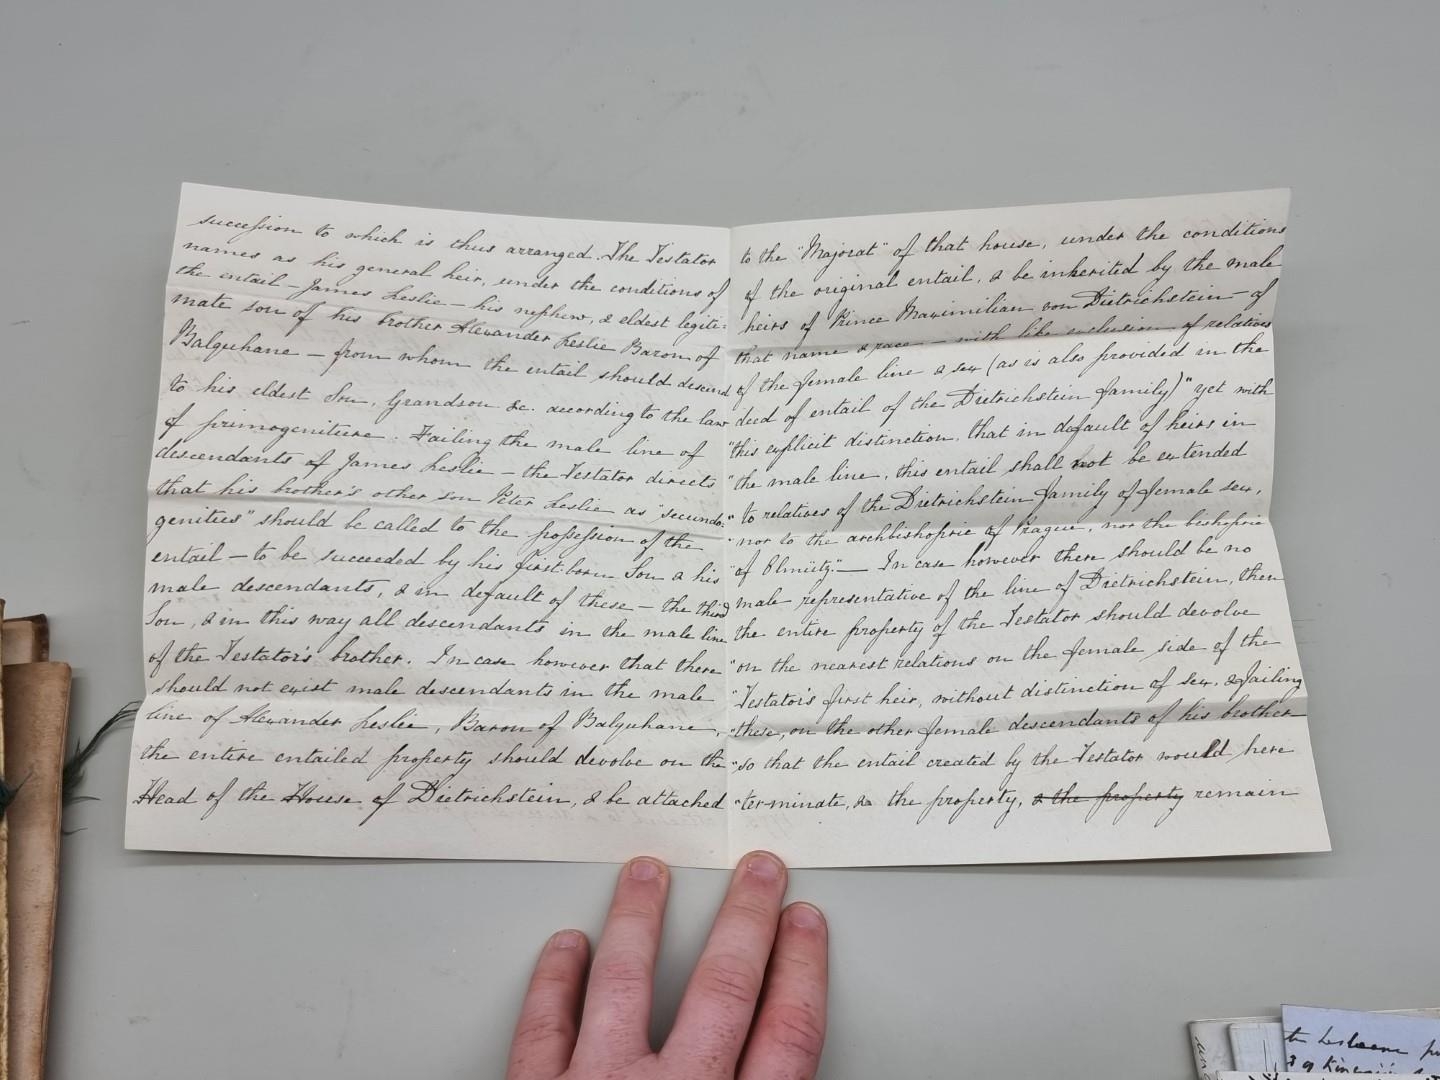 succession to which is thus arranged. The Testator
names as his general heir, under the conditions of
the entail – James Leslie – his nephew, & eldest legiti-
mate son of his brother Alexander Leslie Baron of
Balquhane – from whom the entail should descend
to his eldest Son, Grandson &c. according to the law
of primogeniture. Failing the male line of
descendants of James Leslie – the Testator directs
that his brother's other son Peter Leslie as "secundo-
genitus" should be called to the possession of the
entail – to be succeeded by his first born Son & his
male descendants, & in default of these – the third
Son, & in this way all descendants in the male line
of the Testator's brother. In case however that there
should not exist male descendants in the male
line of Alexander Leslie, Baron of Balquhane,
the entire entailed property should devolve on the
Head of the House of Dietrichstein, & be attached
to the "Majorat" of that house, under the conditions
of the original entail, & be inherited by the male
heirs of Prince Maximilian von Dietrichstein – of
that name & race – with like exclusion of relatives
of the female line & sex (as is also provided in the
deed of entail of the Dietrichstein family) "yet with
"this explicit distinction, that in default of heirs in
"the male line, this entail shall not be extended
"to relatives of the Dietrichstein family of female sex,
"nor to the archbishopric of Prague, nor the bishopric
"of Olmütz." – In case however there should be no
male representative of the line of Dietrichstein, then
the entire property of the Testator should devolve
"on the nearest relations on the female side of the
"Testator's first heir, without distinction of sex, & failing
"these, on the other female descendants of his brother –
"so that the entail created by the Testator would here
"terminate, & the property, & the property remain
to Leslie